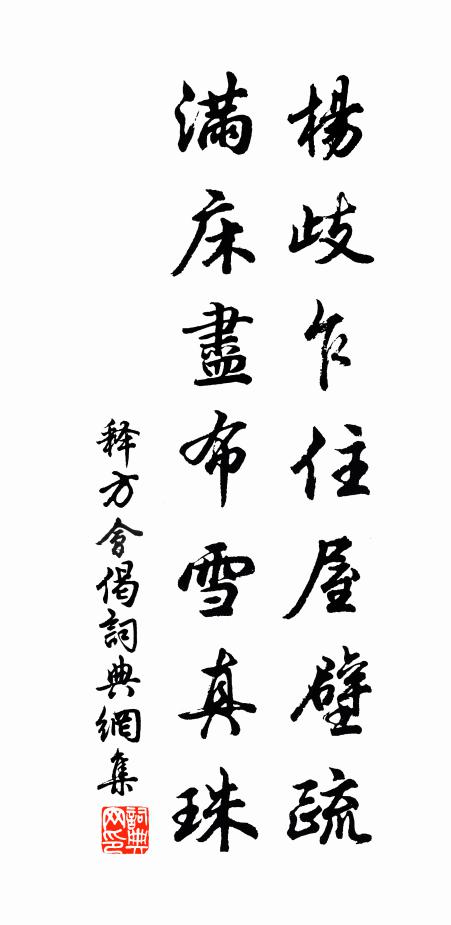 楊歧乍住屋壁疏
滿床盡布雪真珠
释方會偈詞典網集
詞典网印